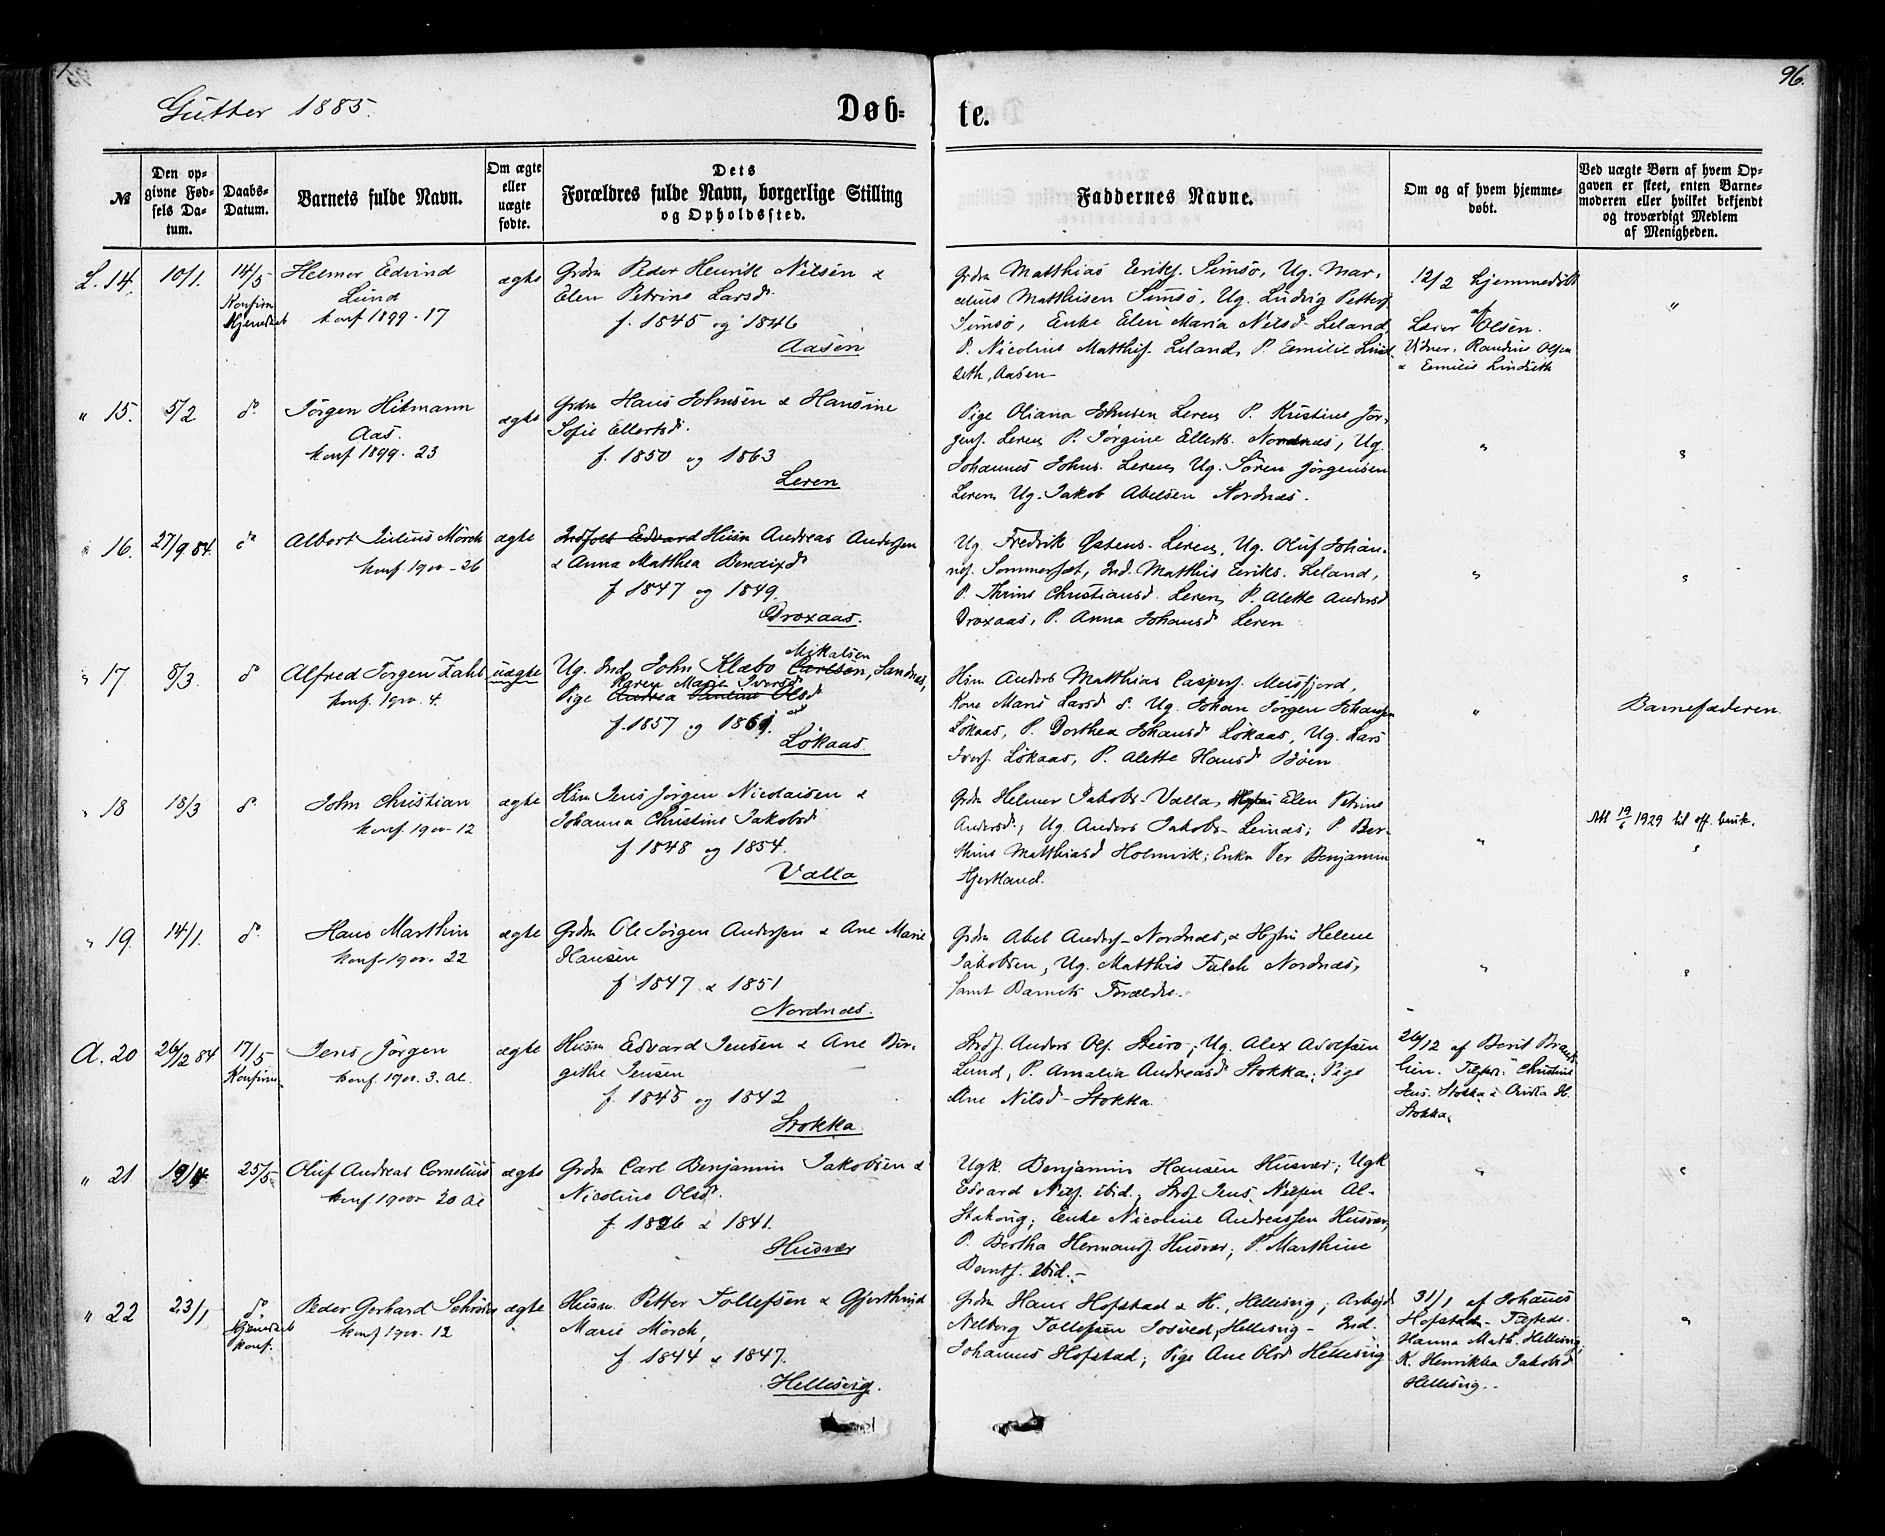 96.
Gutter 1885.
Døb=
te.
№
Den op-
givne Fød-
sels Da-
tum.
Daabs-
Datum.
Barnets fulde Navn.
Om ægte
eller
uægte
fødte.
Dets
Forældres fulde Navn, borgerlige Stilling
og Opholdssted.
Faddernes Navne.
Om og af hvem hjemme-
døbt.
Ved uægte Børn af hvem Op-
gaven er skeet, enten Barne-
moderen eller hvilket bekjendt
og troværdigt Medlem
af Menigheden.
L. 14.
10/1.
14/5
Konfirm
Hjemdøbt
Helmer Edvind
Lund
konf 1899. 17
ægte
Grdm Peder Henrik Nilsen &
Elen Petrine Larsd.
f. 1845 og 1846
Aasen
Grdm Matthias Eriks. Simsø, Ug. Mar-
celius Matthisen Simsø, Ug. Ludvig Petters
Simsø, Enke Elen Maria Nilsd. Leland,
P. Nicoline Matthis. Leland, P. Emilie Lind-
seth, Aasen
12/2 hjemmedøbt
af
Lærer Olsen.
Vidner. Randine Olsen
& Emilie Lindseth
"
" 15.
5/2
do
Jørgen Hitmann
Aas.
konf 1899. 23
ægte
Grdm Hans Johnsen & Hansine
Sofie Ellertsd.
f. 1850 og 1863
Leren
Pige Oliana Johnsen Leren, P. Kristine Jør-
gens. Leren, P. Jørgine Ellerts. Nordnæs, Ug.
Johannes Johns. Leren, Ug. Søren Jørgensen
Leren, Ug. Jakob Abelsen Nordnæs.
"
"
" 16.
27/9 84.
do
Albert Julius Mörch
konf. 1900 - 26
ægte
Indfolk Edvard Husm Andreas Andersen
& Anna Matthea Bendixd.
f 1847 og 1849.
Droxaas.
Ug. Fredrik Østens. Leren, Ug. Oluf Johan-
nes. Sommersæt, Ind. Matthis Eriks. Leland,
P. Thrine Christiansd. Leren, P. Alette Andersd
Droxaas, P. Anna Johansd. Leren
"
"
" 17.
8/3.
do
Alfred Jørgen Zahl
konf. 1900. 4.
uægte
Mikalsen
Ug. Ind. John Klæbo Carlsen, Sandnes,
Karen Marie Iversd
Pige Andrea Pauline Olsd
f. 1857 og 1861.
Løkaas.
Hsm Anders Matthias Caspers. Meisfjord,
Kone Maris Larsd do. Ug. Johan Jørgen Johansen
Løkaas, P. Dorthea Johansd Løkaas, Ug. Lars
Ivers. Løkaas, P. Alette Hansd Bøen
"
Barnefaderen.
" 18
18/3
do
John Christian
konf. 1900-12
ægte
Hsm Jens Jørgen Nicolaisen &
Johanna Christine Jakobsd.
f 1848 og 1854.
Valla
Grdm Helmer Jakobs. Valla, Elen Petrine
Andersd., Ug. Anders Jakobs. Leinæs; P. Ber-
thine Matthiasd Holmvik; Enkm Per Benjamin
Hjertland.
"
Att 19/6 1929 til off. bruk.
"
" 19.
14/1.
do
Hans Marthin
konf. 1900. 22
ægte
Grdm Ole Jørgen Andersen & Ane Marie
Hansen
f 1847 & 1851
Nordnæs.
Grdm Abel Anders. Nordnæs, & Hstr Helene
Jakobsen, Ug. Matthis Falch Nordnæs,
samt Barnets Forældre.
"
"
A. 20
26/12 84
17/5
Konfirm.
Jens Jørgen
konf. 1900. 3. Al.
ægte
Husm Edvard Jensen & Ane Bir-
githe Jensen
f. 1845 og 1842
Stokka.
Strds. Anders Ols. Leiro; Ug. Alex Adolfsen
Lund, P. Amalia Andreasd Stokka; Pige
Ane Nilsd. Stokka.
26/12 af Berit Brant-
lien. Christine
Jens. Stokka &
Stokka.
" 21
19/4
25/5
Oluf Andreas Cornelius
konf 1900 20 Al
ægte
Grdm Carl Benjamin Jakobsen &
Nicoline Olsd.
f. 1826 & 1841.
Husvær
Ugk. Benjamin Hansen Husvær; Ugk
Edvard Niels. ibid.; Strds. Jens Nilsen Al-
stahoug; Enke Nicoline Andreassen Husvær,
P. Bertha Hermans. Husvær; P. Marthine
Bernts. ibid.
"
"
" 22
23/1
do
Hjemdøbt
konf.
Peder Gerhard Schrøder
konf 1900. 12
ægte
Husm. Petter Tollefsen & Gjerthrud
Marie Mörch,
f. 1844 & 1847.
Hellesvig.
Grdm Hans Hofstad & H., Hellesvig; Arbejd.
Nelberg Tollefsen Hellesvig - Ind.
Johannes Hofstad; Pige Ane Olsd Hellesvig
31/1 af Johanes
Hofstad.
Hanna Math. Hellesvig,
K. Henrikka Jakobsd
Hellesvig.
"